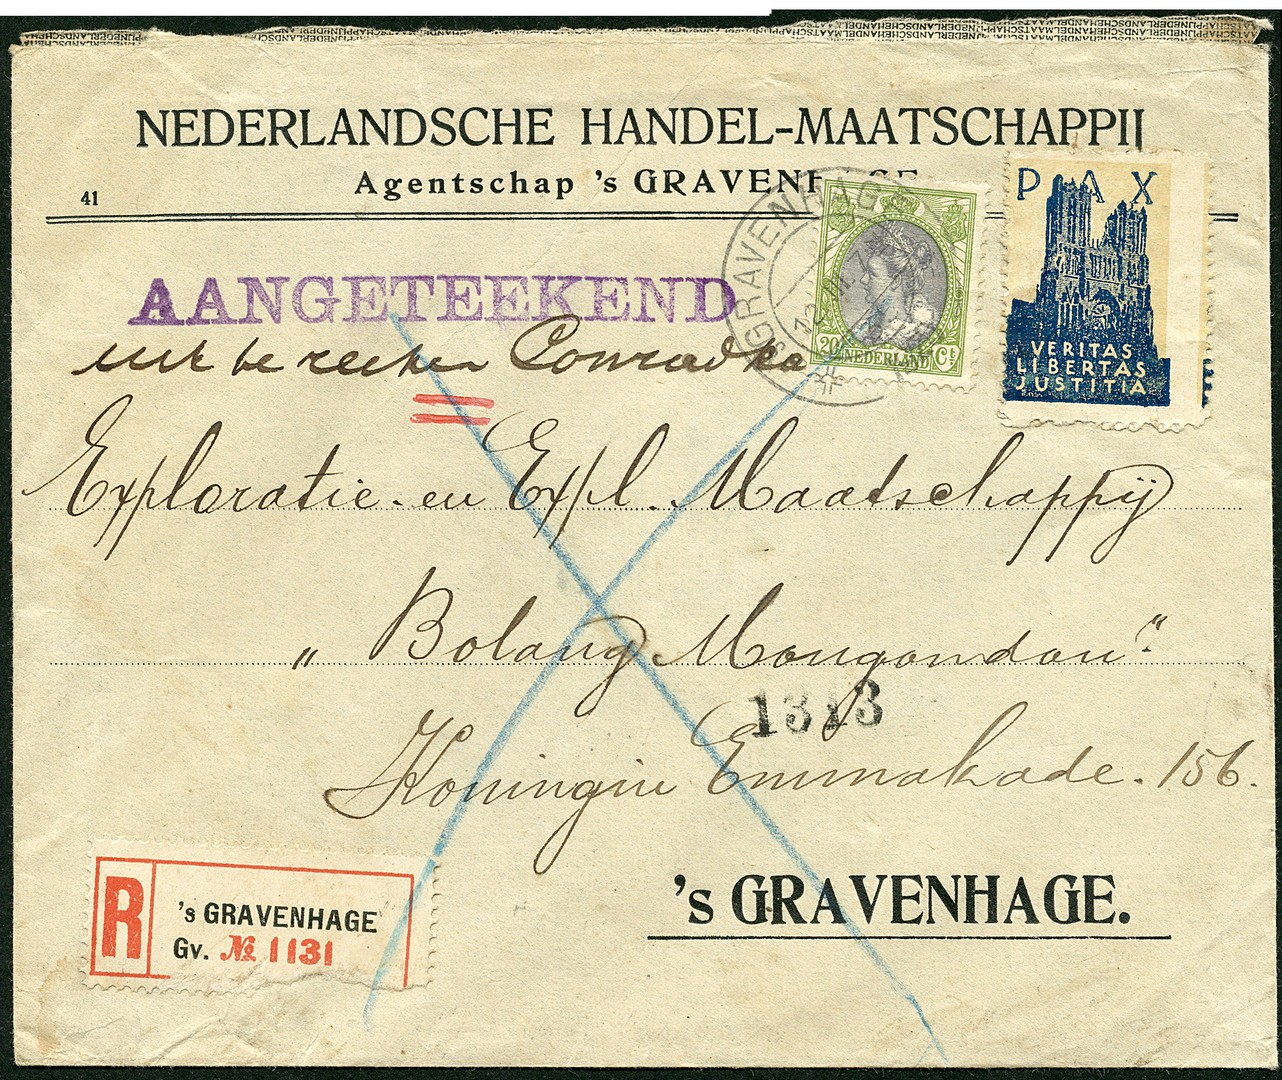 NEDERLANDSCHE HANDEL-MAATSCHAPPIJ
Agentschap 's GRAVENHAGE
41
'SGRAVENHAGE
20 NEDERLAND Ct
PAX
VERITAS
LIBERTAS
JUSTITIA
AANGETEEKEND
uit te reeken Conradka
Exploratie- en Expl. Maatschappij
„Bolang Mongondou"
1313
Koningin Emmakade. 156.
's GRAVENHAGE.
R
's GRAVENHAGE
Gv. № 1131